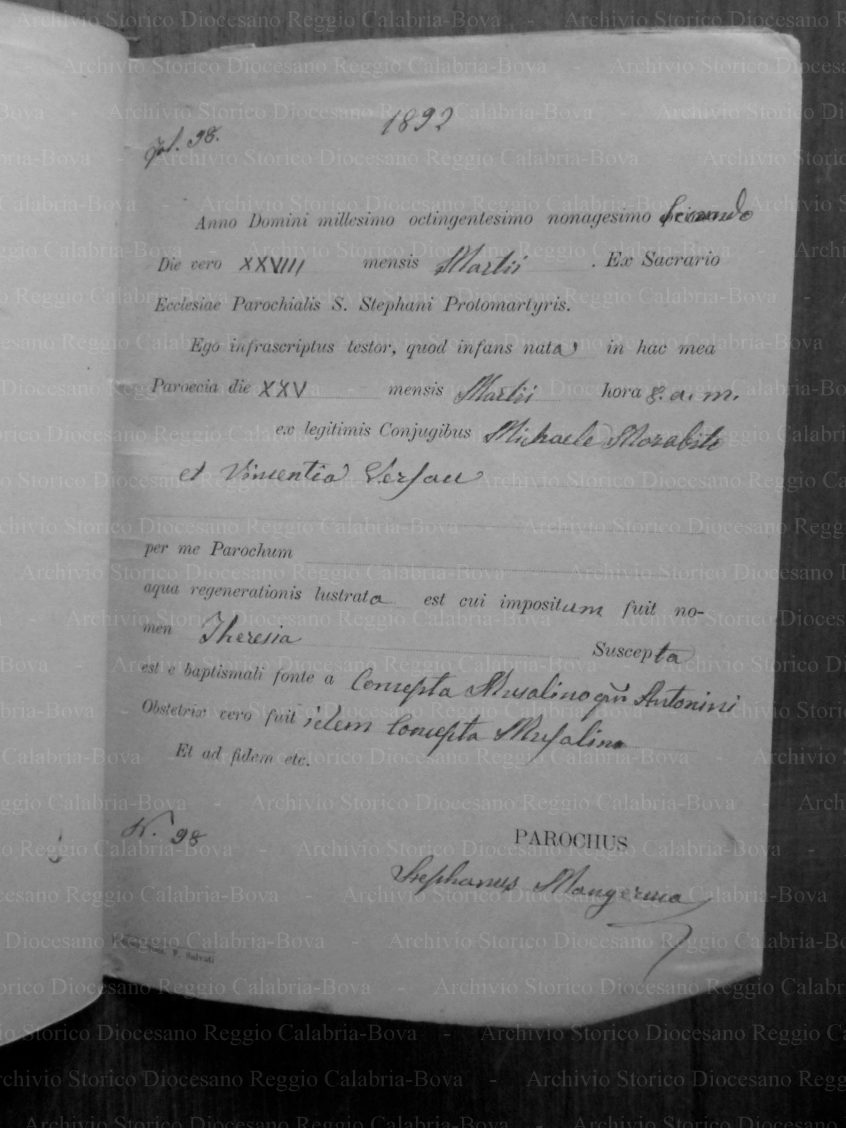 1892
Fol. 98.
Anno Domini millesimo octingentesimo nonagesimo secundo
Die vero XXVIII mensis Martii . Ex Sacrario
Ecclesiae Parochialis S. Stephani Protomartyris.
Ego infrascriptus testor, quod infans nata in hac mea
Paroecia die XXV mensis Martii hora 8. a. m.
ex legitimis Conjugibus Michaele Morabito
et Vincentia
per me Parochum
aqua regenerationis lustrata est cui impositum fuit no-
men Theresia Suscepta
est e baptismali fonte a Concepta Musolino qm Antonini
Obstetrix vero fuit idem Concepta Musolino
Et ad fidem etc.
N. 98
PAROCHUS
Stephanus
F. Salvati
Archivio Storico Diocesano Reggio Calabria-Bova